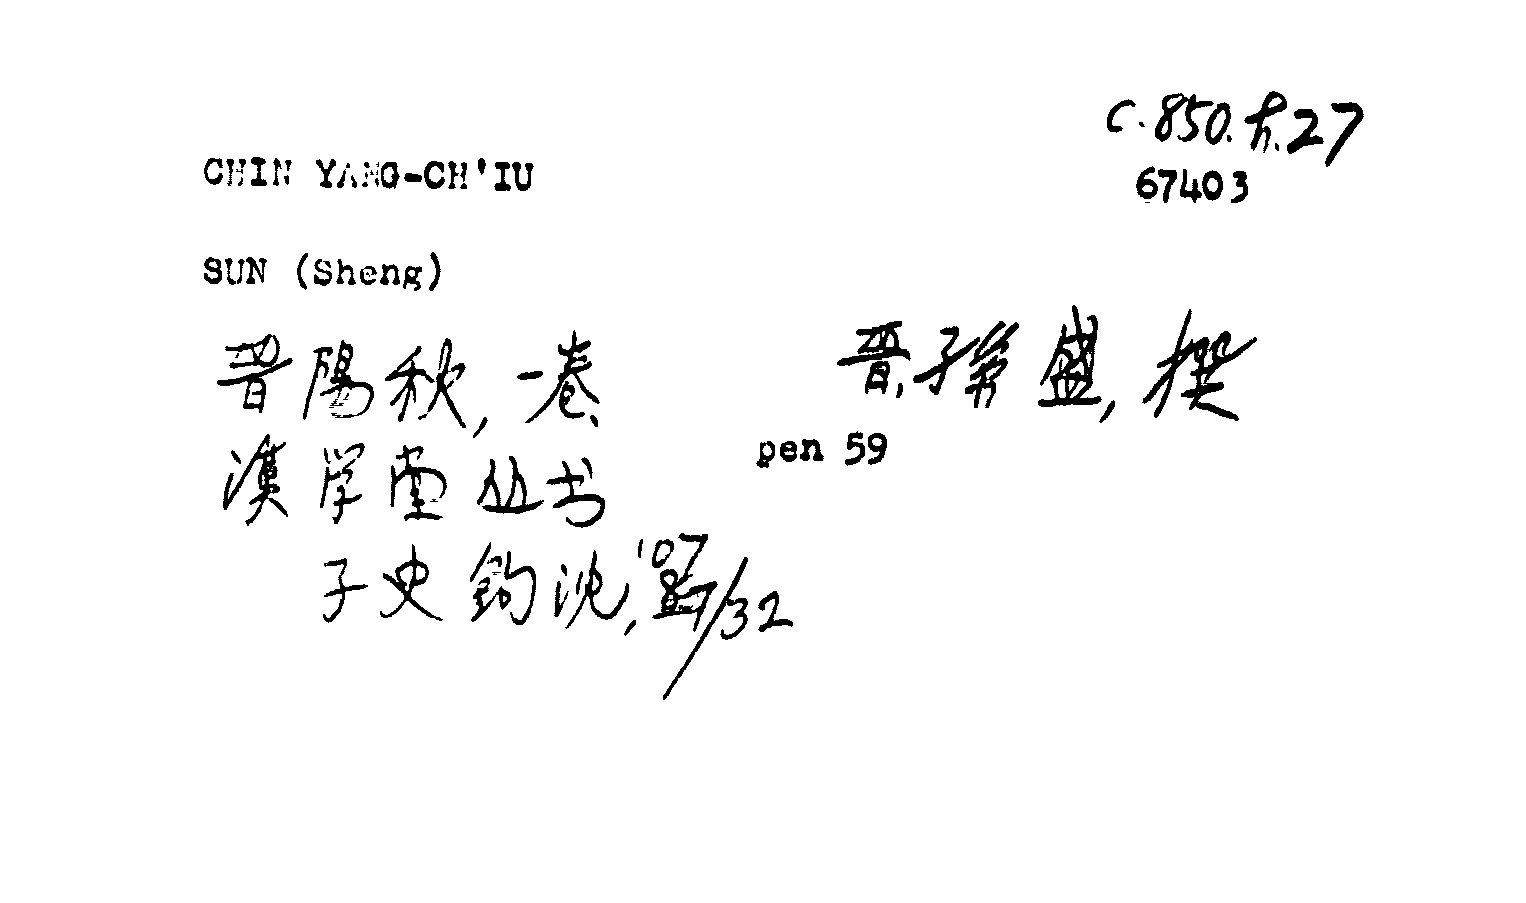 C.850. .27
67403
CHIN YANG-CH'IU
SUN (Sheng)
晋陽秋, 一卷、 晋, 孫盛, 撰
漢学堂丛书 pen 59
子史鈎沈, '07/32